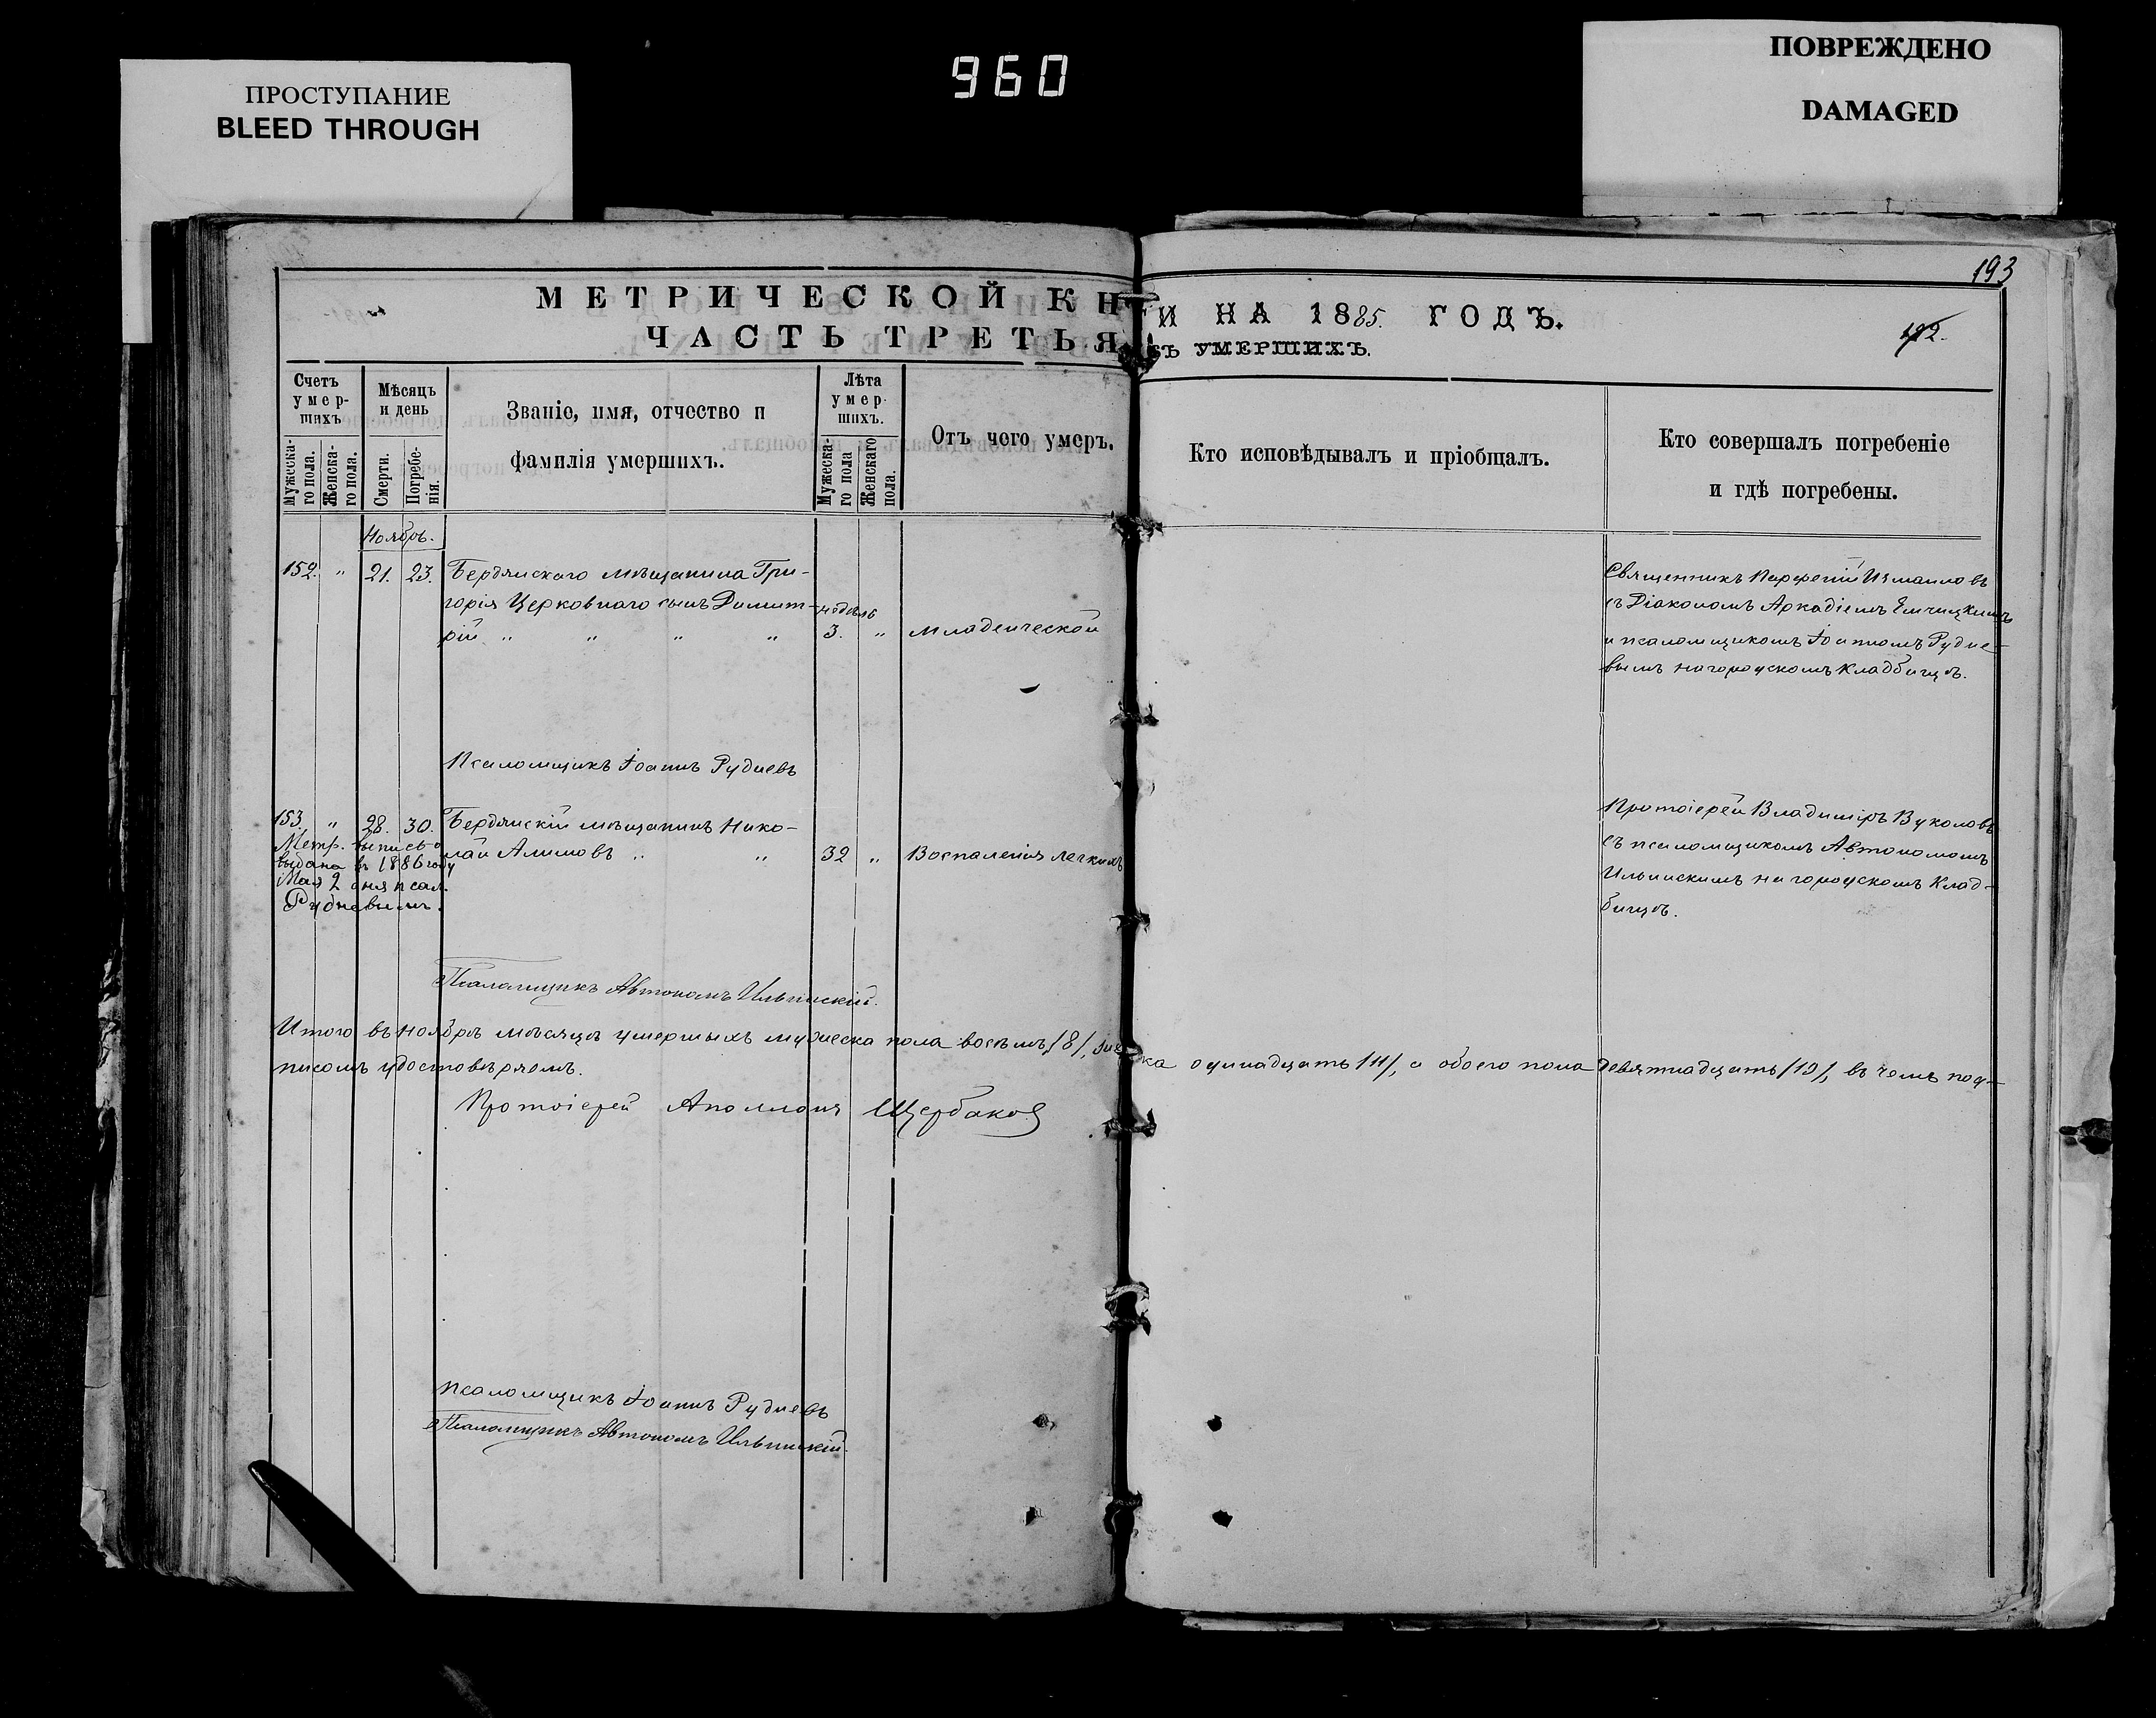 ПРОСТУПАНИЕ
BLEED THROUGH
960
ПОВРЕЖДЕНО
DAMAGED
193
192.
МЕТРИЧЕСКОЙ КНИ НА 1885. ГОДЪ.
ЧАСТЬ ТРЕТЬЯ УМЕРШИХЪ.
Счетъ умер-шихъ
Мужеска-го пола.
Женска-го пола.
Мѣсяцъ и день
Смерти.
Погребе-нія.
Званіе, имя, отчество и
фамилія умершихъ.
Лѣта умер-шихъ.
Мужеска-го пола
Женскаго пола.
Отъ чего умеръ.
Кто исповѣдывалъ и пріобщалъ.
Кто совершалъ погребеніе
и гдѣ погребены.
Ноябрь.
152. " 21. 23. Бердянскаго мѣщанина Гри-
горія Церковнаго сынъ Димит-
рій " " " "
недѣль
3. " Младенческой
Священникъ Парфеній Измаиловъ
съ Діакономъ Аркадіемъ Емчицкимъ
и псаломщикомъ Іоанномъ Рудне-
вымъ на городскомъ кладбищѣ.
Псаломщикъ Іоаннъ Рудневъ
153. " 28. 30. Бердянскій мѣщанинъ Нико-
лай Алимовъ " " 32 " Воспаленія легкихъ
Метр. выпись
выдана въ 1886 году
Мая 2 дня псал.
Рудневымъ.
Протоіерей Владиміръ Вуколовъ
съ псаломщикомъ Автономомъ
Ильинскимъ на городскомъ Клад-
бищѣ.
Псаломщикъ Автономъ Ильинскій.
Итого въ ноябрѣ мѣсяцѣ умершыхъ мужеска пола восемь /8/, же ка одинадцать /11/, а обоего пола девятнадцать /19/, въ чемъ под-
писомъ удостовѣряемъ.
Протоіерей Аполлонъ Щербаков
Псаломщикъ Іоаннъ Рудневъ
Псаломщикъ Автономъ Ильинскій.